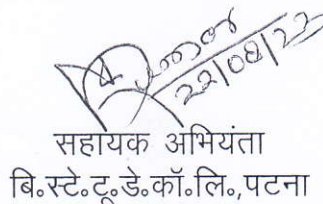 22/08/23
सहायक अभियंता
बि॰स्टे॰टू॰डे॰कॉ॰लि॰,पटना